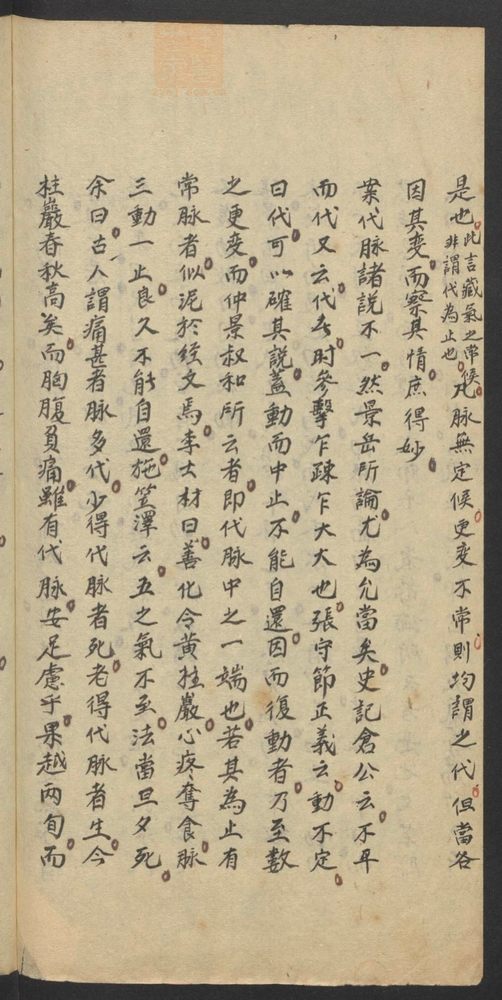 是也此言藏氣之常候非謂代為止也凡脉無定候更變不常則均謂之代但當各
因其變而察其情庶得妙
案代脉諸說不一然景岳所論尤為允當矣史記倉公云不平
而代又云代者时參擊乍疎乍大大也張守節正義云動不定
曰代可以確其說蓋動而中止不能自還因而復動者乃至數
之更變而仲景叔和所云者即代脉中之一端也若其為止有
常脉者似泥於経文焉李士材曰善化令黄柱巖心疼奪食脉
三動一止良久不能自還施笠澤云五之氣不至法當旦夕死
余曰古人謂痛甚者脉多代少得代脉者死老得代脉者生今
柱巖春秋高矣而胸腹負痛雖有代脉安足慮乎果越兩旬而